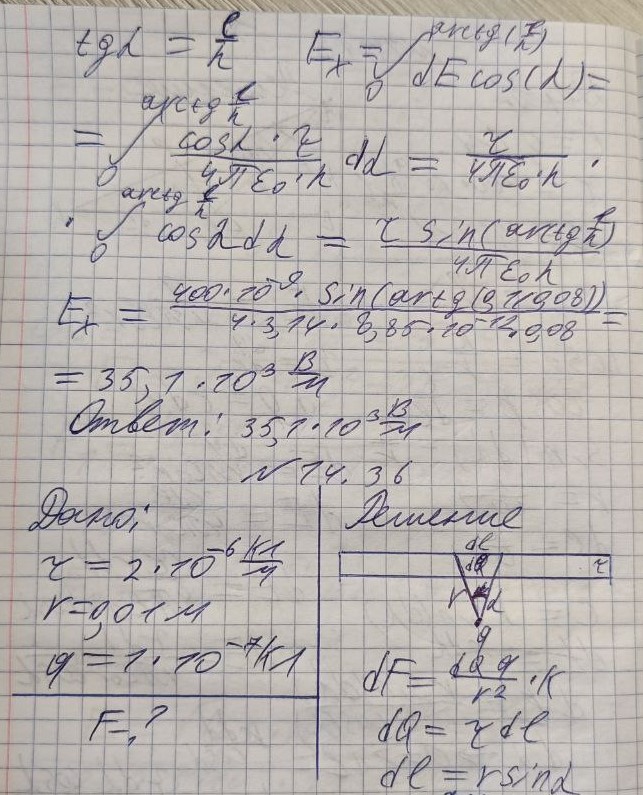 tgα = ℓ/h    Eₓ = ∫₀^arctg(ℓ/h) dE cos(α) =
= ∫₀^arctg ℓ/h (cosα · τ)/(4πε₀·h) dα = τ/(4πε₀·h) ·
· ∫₀^arctg ℓ/h cosα dα = τ sin(arctg ℓ/h)/(4πε₀h)
Eₓ = 400·10⁻⁹·sin(arctg(0,2/0,08))/(4·3,14·8,85·10⁻¹²·0,08) =
= 35,1·10³ В/м
Ответ: 35,1·10³ В/м
№ 14.36
Дано:
τ = 2·10⁻⁶ Кл/м
r=0,01 м
q = 1·10⁻⁷ Кл
F-?
Решение
dℓ
dQ
τ
r
α
q
dF = (dQ q)/r² · k
dQ = τ dℓ
dℓ = r sinα